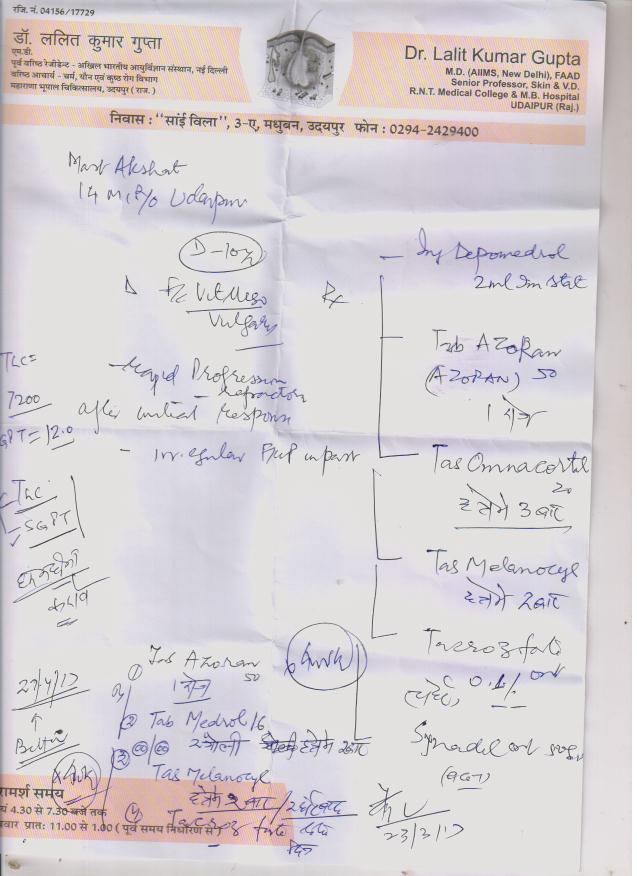 रजि. नं. 04156/17729
डॉ. ललित कुमार गुप्ता
एम.डी.
पूर्व वरिष्ठ रेजीडेन्ट - अखिल भारतीय आयुर्विज्ञान संस्थान, नई दिल्ली
वरिष्ठ आचार्य - चर्म, यौन एवं कुष्ठ रोग विभाग
महाराणा भूपाल चिकित्सालय, उदयपुर ( राज. )
Dr. Lalit Kumar Gupta
M.D. (AIIMS, New Delhi), FAAD
Senior Professor, Skin & V.D.
R.N.T. Medical College & M.B. Hospital
UDAIPUR (Raj.)
निवास : "सांई विला", ३-ए, मधुबन, उदयपुर फोन : 0294-2429400
Akshat
14 M, R/o Udaipur
D-10y
Vitiligo
Vulgaris
TLC=
7200
GPT= 12.0
- Rapid Progression
- Refractory
after initial response
- irregular F/up in past
TLC
- SGPT
Rx
- Inj Depomedrol
2ml Im stat
Tab AZORAN
(AZORAN) 50
1 रोज
Tab Omnacortil
20
हफ्ते में 3 बार
Tab Melanocyl
हफ्ते में 2 बार
Tacroz forte
0.1% ont
23/3/17
27/4/17
Better
① Tab Azoran
50
1 रोज
② Tab Medrol 16
2 गोली हफ्ते में 2 बार
Tab Melanocyl
हफ्ते में 2 बार
④ Tacroz forte
रामर्श समय
यं 4.30 से 7.30 बजे तक
वार प्रातः 11.00 से 1.00 ( पूर्व समय निर्धारण से )